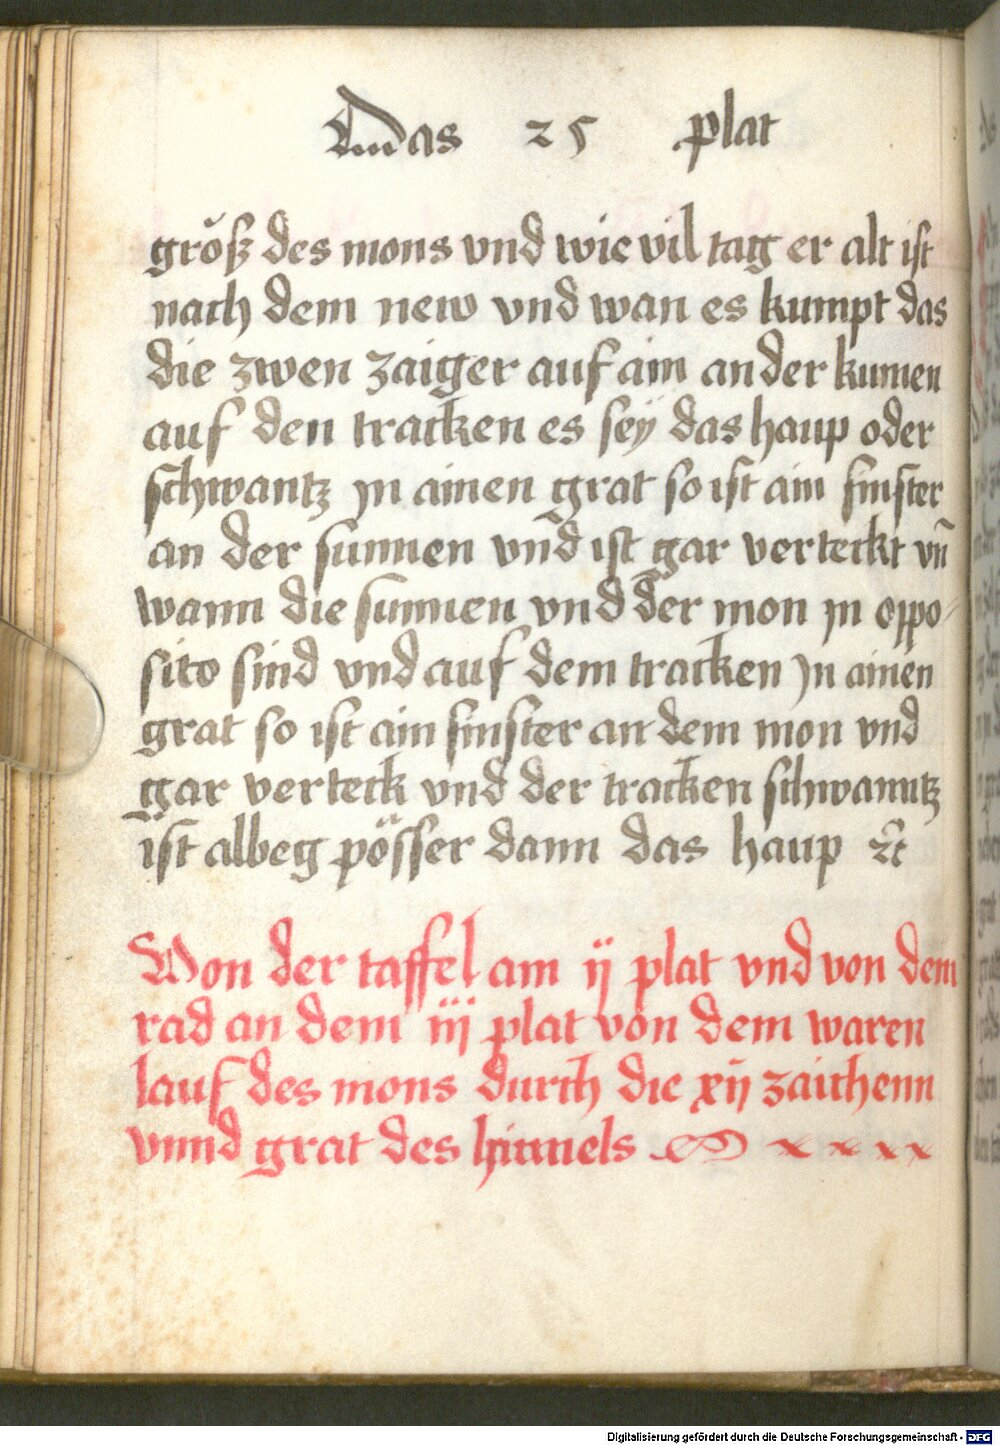 Das 25 plat
größ des mons vnd wie vil tag er alt ist
nach dem new vnd wan es kumpt das
die zwen zaiger auf aim ander kumen
auf den tracken es seÿ das haup oder
schwantz jn ainen grat so ist ain finster
an der sunnen vnd ist gar verteckt vn̄
wann die sunnen vnd der mon jn oppo-
sito sind vnd auf dem tracken Jn ainen
grat so ist ain finster an dem mon vnd
gar verteck vnd der tracken schwanntz
ist albeg pösser dann das haup ꝛc
Von der taffel am ij plat vnd von dem
rad an dem iij plat von dem waren
lauf des mons durch die xij zaichenn
vnnd grat des himels
Digitalisierung gefördert durch die Deutsche Forschungsgemeinschaft - DFG